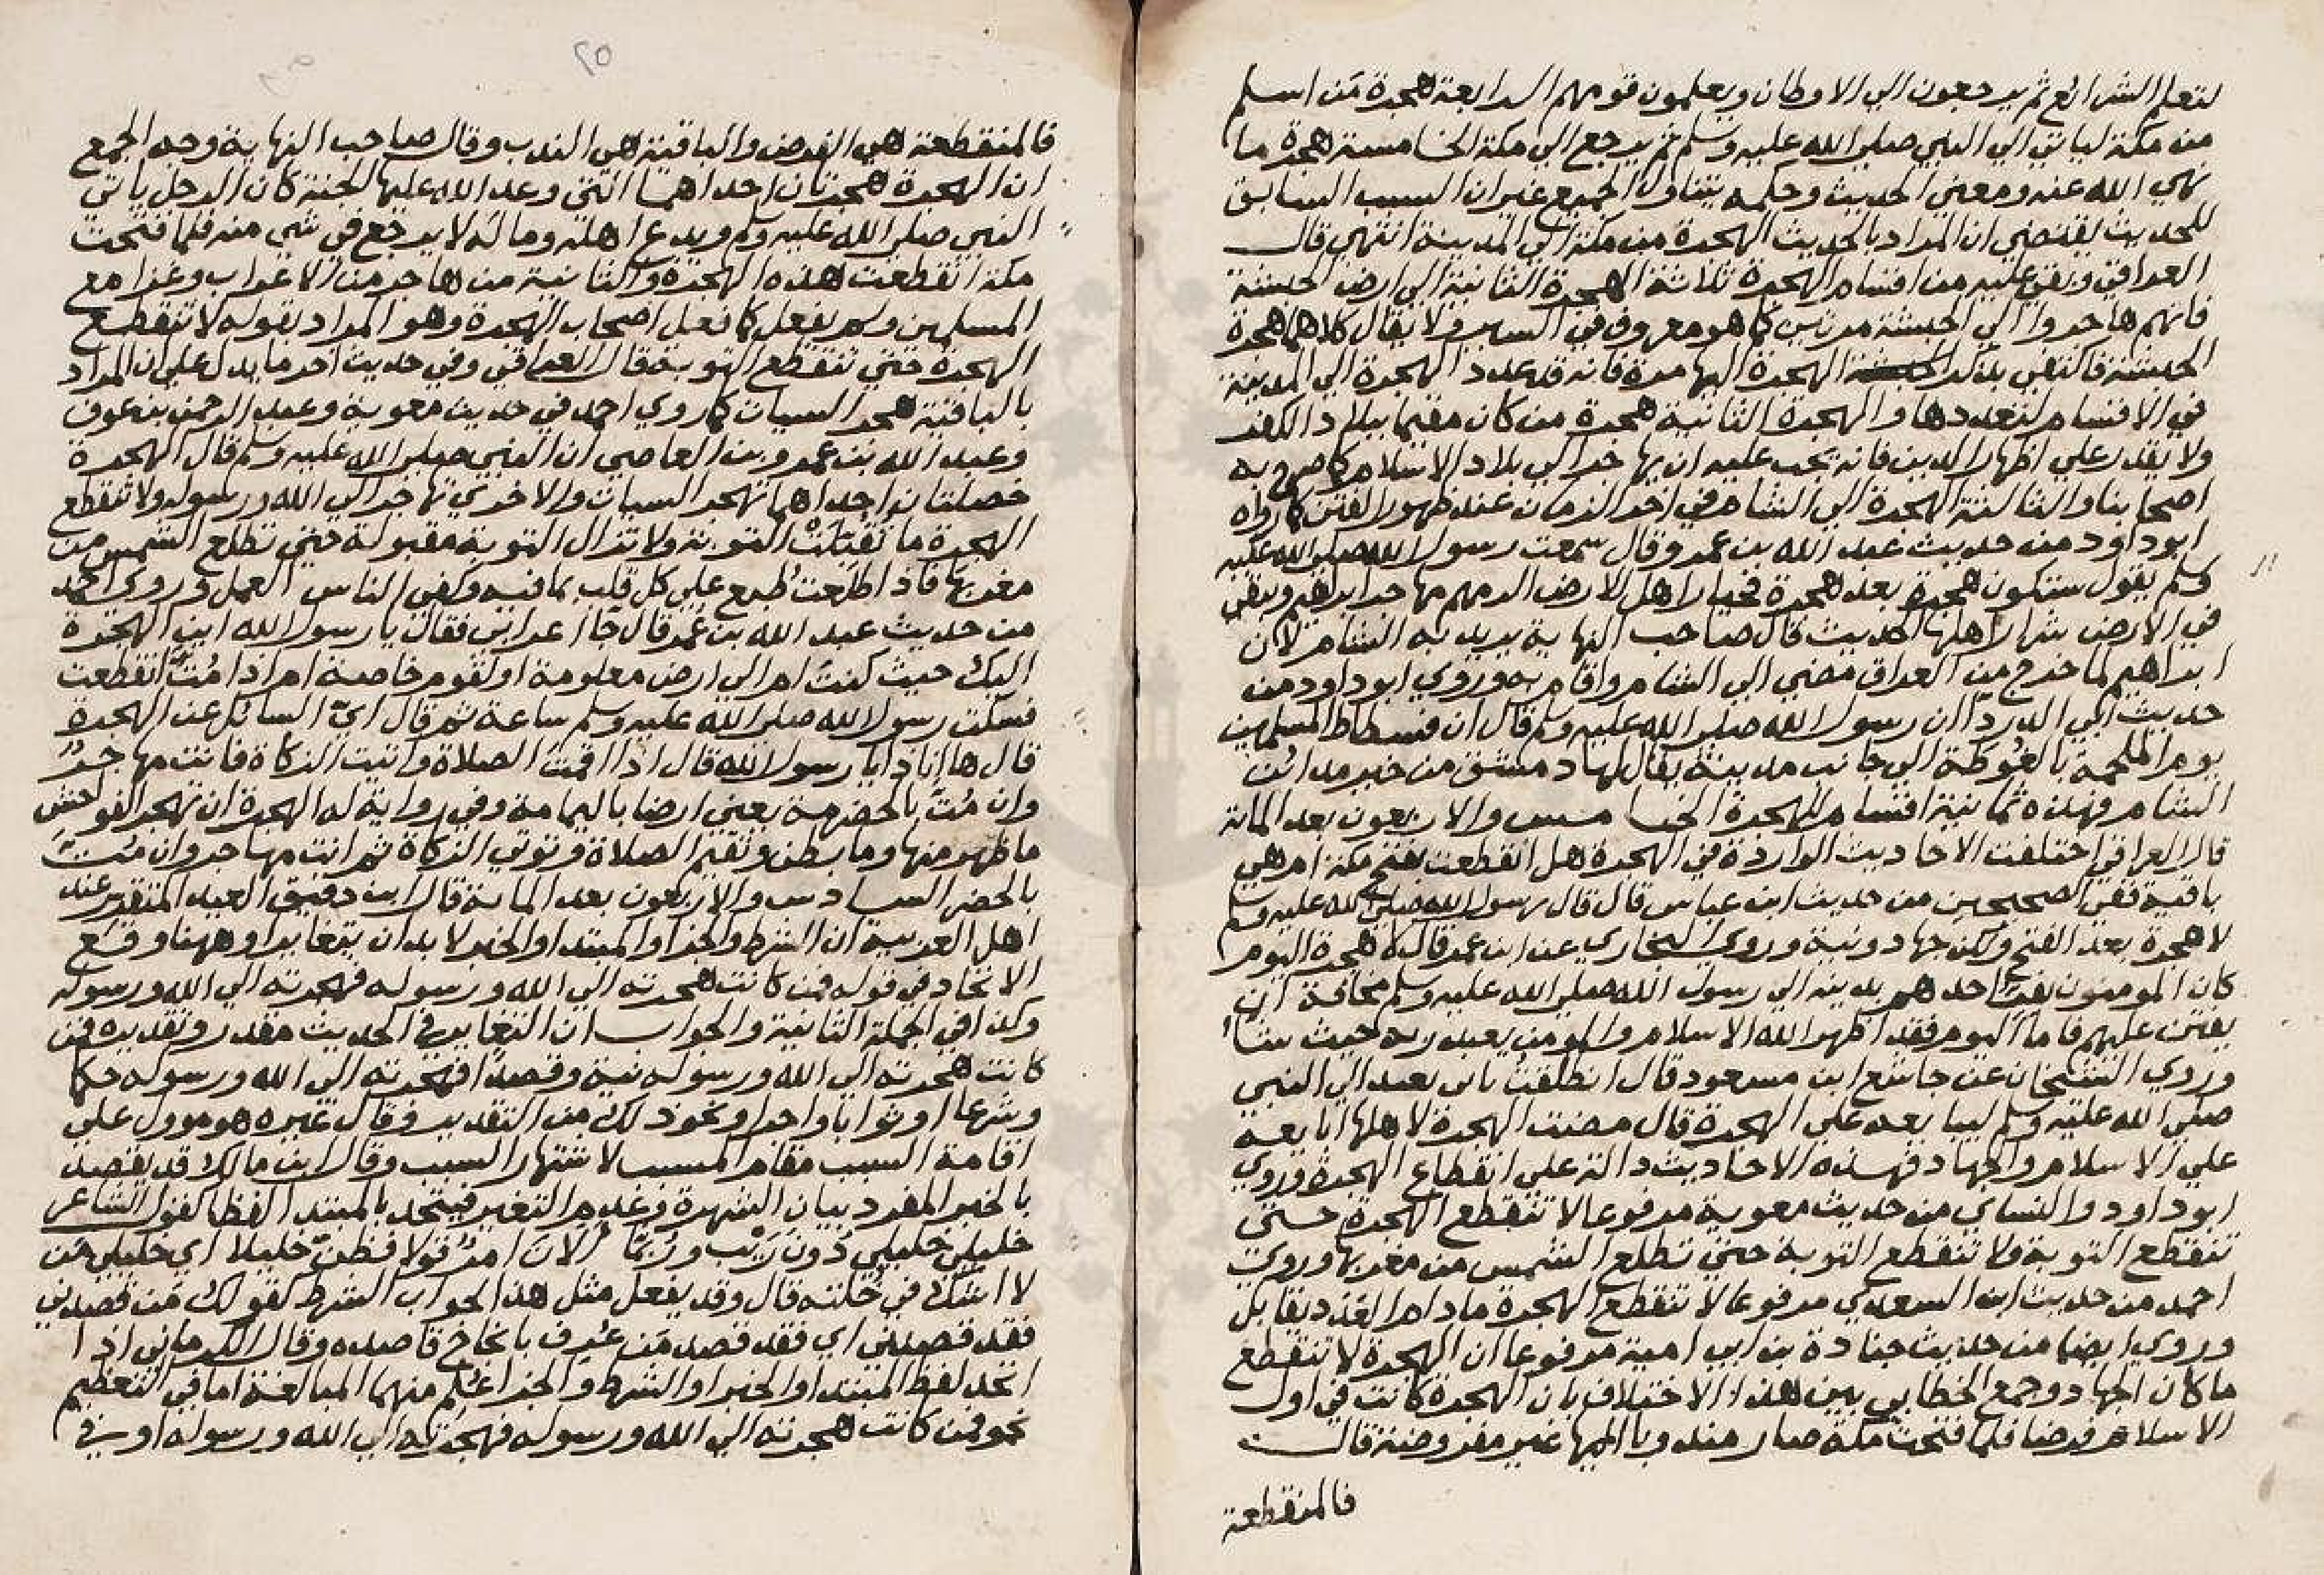 لتعلم الشرائع ثم يرجعون الي الاوطان ويعلمون قومهم الرابعة هجرة من اسلم
من مكة لياتي الي النبي صلي الله عليه وسلم ثم يرجع الي مكة الخامسة هجرة ما
نهي الله عنه ومعني الحديث وحكمه يتناول الجميع غير ان السبب السابق
للحديث يقتضي ان المراد بالحديث الهجرة من مكة الي المدينة انتهي قال
العراقي وبقي عليه من اقسام الهجرة ثلاثة الهجرة الثانية الي ارض الحبشة
فانهم هاجروا الي الحبشة مرتين كما هو معروف في السير ولا يقال كلاهما هجرة
الحبشة فاكتفي بذكر الهجرة اليها مرة فانه قد عدد الهجرة الي المدينة
في الاقسام لتعددها والهجرة الثانية هجرة من كان مقيما ببلاد الكفر
ولا يقدر علي اظهار الدين فانه يجب عليه ان يهاجر الي بلاد الاسلام كما صرح به
اصحابنا والثالثة الهجرة الي الشام في اخر الزمان عند ظهور الفتن كما رواه
ابو داود من حديث عبد الله بن عمرو قال سمعت رسول الله صلي الله عليه
وسلم يقول ستكون هجرة بعد هجرة فخيار اهل الارض الزمهم مهاجر ابراهيم ويبقي
في الارض شرار اهلها الحديث قال صاحب النهاية يريد به الشام لان
ابراهيم لما خرج من العراق مضي الي الشام واقام به وروي ابو داود من
حديث ابي الدردا ان رسول الله صلي الله عليه وسلم قال ان فسطاط المسلمين
يوم الملحمة بالغوطة الي جانب مدينة يقال لها دمشق من خير مداين
الشام فهذه ثمانية اقسام للهجرة الخامس والاربعون بعد الماية
قال العراقي اختلفت الاحاديث الواردة في الهجرة هل انقطعت بفتح مكة ام هي
باقية ففي الصحيحين من حديث ابن عباس قال قال رسول الله صلي الله عليه وسلم
لا هجرة بعد الفتح ولكن جهاد ونية وروي البخاري عن ابن عمر قال لا هجرة اليوم
كان المومنون يفر احدهم بدينه الي رسول الله صلي الله عليه وسلم مخافة ان
يفتن عليهم فاما اليوم فقد اظهر الله الاسلام والمومن يعبد ربه حيث شا
وروي الشيخان عن جاشع ابن مسعود قال انطلقت بابي معبد الي النبي
صلي الله عليه وسلم ليبايعه علي الهجرة قال مضت الهجرة لاهلها ابايعه
علي الاسلام والجهاد فهذه الاحاديث دالة علي انقطاع الهجرة وروي
ابو داود والنساي من حديث معوية مرفوعا لا تنقطع الهجرة حتي
تنقطع التوبة ولا تنقطع التوبة حتي تطلع الشمس من مغربها وروي
احمد من حديث ابن السعدي مرفوعا لا تنقطع الهجرة ما دام العدو يقاتل
وروي ايضا من حديث جنادة بن ابي امية مرفوعا ان الهجرة لا تنقطع
ما كان الجهاد وجمع الخطابي بين هذا الاختلاف بان الهجرة كانت في اول
الاسلام فرضا فلما فتحت مكة صار مندوبا اليها غير مفروضة قال
فالمنقطعة
٢٥
فالمنقطعة هي الفرض والباقية هي الندب وقال صاحب النهاية وجه الجمع
ان الهجرة هجرتان احداهما التي وعد الله عليها الجنة كان الرجل ياتي
النبي صلي الله عليه وسلم ويدع اهله وماله لا يرجع في شي منه فلما فتحت
مكة انقطعت هذه الهجرة والثانية من هاجر من الاعراب وغزا مع
المسلمين ولم يفعل كما فعل اصحاب الهجرة وهو المراد بقوله لا تنقطع
الهجرة حتي تنقطع التوبة قال العراقي وفي حديث اخر ما يدل علي ان المراد
بالباقية هجر السيات كما روي احمد في حديث معوية وعبد الرحمن بن عوف
وعبد الله بن عمرو بن العاصي ان النبي صلي الله عليه وسلم قال الهجرة
خصلتان احداهما تهجر السيات والاخري تهاجر الي الله ورسوله ولا تنقطع
الهجرة ما تُقُبِّلَت التوبة ولا تزال التوبة مقبولة حتي تطلع الشمس من
مغربها فاذا طلعت طبع علي كل قلب بما فيه وكفي الناس العمل وروي احمد
من حديث عبد الله بن عمر قال جا اعرابي فقال يا رسول الله اين الهجرة
اليك حيث كنت ام الي ارض معلومة او لقوم خاصة ام اذا مُتَّ انقطعت
فسكت رسول الله صلي الله عليه وسلم ساعة ثم قال اين السائل عن الهجرة
قال ها انا ذا يا رسول الله قال اذا اقمت الصلاة واتيت الزكاة فانت مهاجر
وان مُتَّ بالحضرمة يعني ارضا باليمامة وفي رواية له الهجرة ان تهجر الفواحش
ما ظهر منها وما بطن وتقيم الصلاة وتوتي الزكاة ثم انت مهاجر وان مُتَّ
بالحضر السادس والاربعون بعد الماية قال ابن دقيق العيد المتقرر عند
اهل العربية ان الشرط والجزا والمبتدا والخبر لا بد ان يتغايرا وههنا وقع
الاتحاد في قوله فمن كانت هجرته الي الله ورسوله فهجرته الي الله ورسوله
وكذا في الجملة الثانية والجواب ان التغاير في الحديث مقدر وتقديره فمن
كانت هجرته الي الله ورسوله نية وقصدا فهجرته الي الله ورسوله حكما
وشرعا او ثوابا واجرا ونحو ذلك من التقدير وقال غيره هو موول علي
اقامة السبب مقام المسبب لاشتهار السبب وقال ابن مالك قد يقصد
بالخبر المفرد بيان الشهرة وعدم التغير فيتحد بالمبتدا لفظا كقول الشاعر
خليلي خليلي دون ريب وربما الان امرُؤ قولا فظن خليلا اي خليلي من
لا اشك في خلته قال وقد يفعل مثل هذا الجواب الشرط كقولك من قصدني
فقد قصدني اي فقد قصد من عُرف بانجاح قاصده وقال الكرماني اذا
اتحد لفظ المبتدا والخبر او الشرط والجزا عُلم منهما المبالغة اما في التعظيم
نحو فمن كانت هجرته الي الله ورسوله فهجرته الي الله ورسوله او في